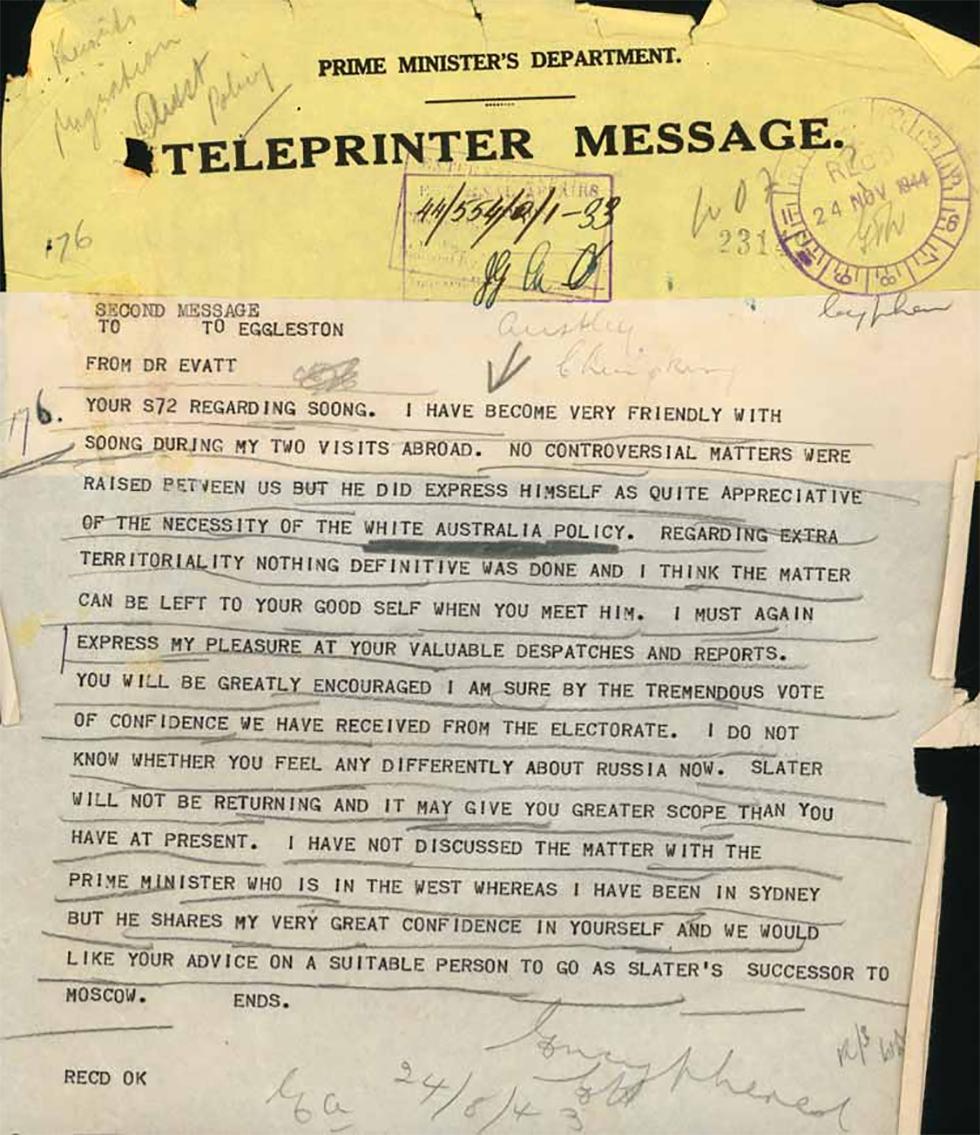 PRIME MINISTER'S DEPARTMENT.
Migration
Policy
TELEPRINTER MESSAGE.
44/554/2/1-33
REC
24 NOV 1944
231
176
SECOND MESSAGE
TO TO EGGLESTON
FROM DR EVATT
176.
YOUR S72 REGARDING SOONG. I HAVE BECOME VERY FRIENDLY WITH
SOONG DURING MY TWO VISITS ABROAD. NO CONTROVERSIAL MATTERS WERE
RAISED BETWEEN US BUT HE DID EXPRESS HIMSELF AS QUITE APPRECIATIVE
OF THE NECESSITY OF THE WHITE AUSTRALIA POLICY. REGARDING EXTRA
TERRITORIALITY NOTHING DEFINITIVE WAS DONE AND I THINK THE MATTER
CAN BE LEFT TO YOUR GOOD SELF WHEN YOU MEET HIM. I MUST AGAIN
EXPRESS MY PLEASURE AT YOUR VALUABLE DESPATCHES AND REPORTS.
YOU WILL BE GREATLY ENCOURAGED I AM SURE BY THE TREMENDOUS VOTE
OF CONFIDENCE WE HAVE RECEIVED FROM THE ELECTORATE. I DO NOT
KNOW WHETHER YOU FEEL ANY DIFFERENTLY ABOUT RUSSIA NOW. SLATER
WILL NOT BE RETURNING AND IT MAY GIVE YOU GREATER SCOPE THAN YOU
HAVE AT PRESENT. I HAVE NOT DISCUSSED THE MATTER WITH THE
PRIME MINISTER WHO IS IN THE WEST WHEREAS I HAVE BEEN IN SYDNEY
BUT HE SHARES MY VERY GREAT CONFIDENCE IN YOURSELF AND WE WOULD
LIKE YOUR ADVICE ON A SUITABLE PERSON TO GO AS SLATER'S SUCCESSOR TO
MOSCOW. ENDS.
RECD OK
24/8/43
Encyphered